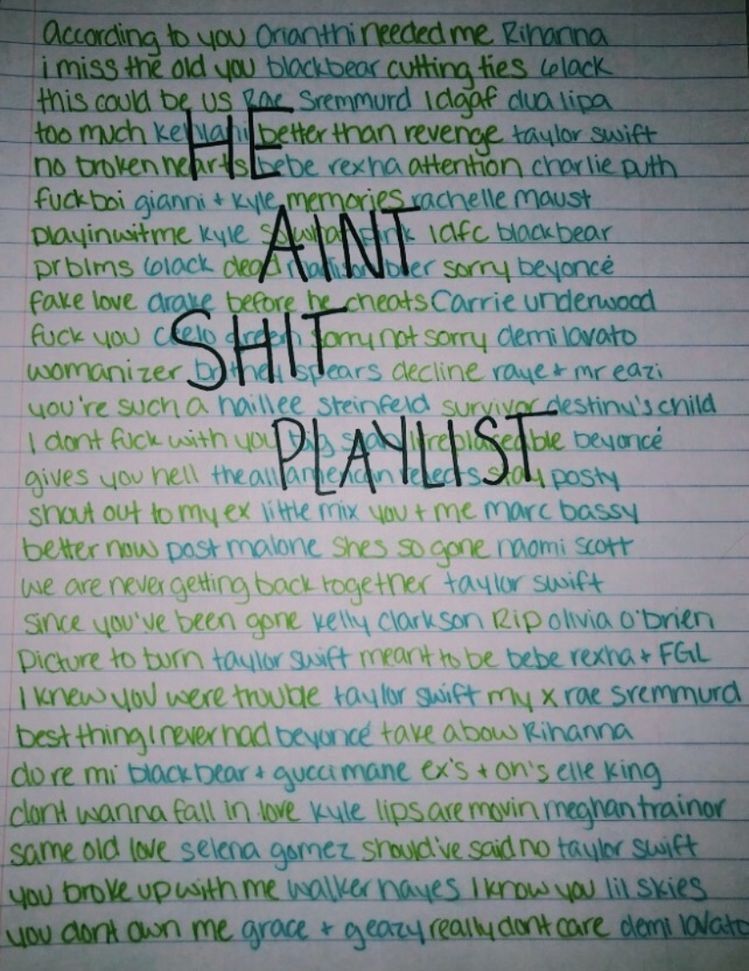 according to you Orianthi needed me Rihanna
i miss the old you blackbear cutting ties 6lack
this could be us Rae Sremmurd Idgaf dua lipa
too much kehlani better than revenge taylor swift
HE
no broken hearts bebe rexha attention charlie puth
fuckboi gianni + kyle memories rachelle maust
playinwitme kyle so what pink Idfc blackbear
AINT
prblms 6lack dead madison beer sorry beyoncé
fake love drake before he cheats Carrie underwood
fuck you ceelo green sorry not sorry demi lavato
SHIT
womanizer britney spears decline raye + mr eazi
you're such a hailee steinfeld survivor destiny's child
I dont fuck with you big sean irreplaceable beyoncé
PLAYLIST
gives you hell the all american rejects stay posty
shout out to my ex little mix you + me marc bassy
better now post malone shes so gone naomi scott
we are never getting back together taylor swift
since you've been gone kelly clarkson Rip olivia o'brien
Picture to burn taylor swift meant to be bebe rexha + FGL
I knew you were trouble taylor swift my x rae sremmurd
best thing I never had beyoncé take a bow Rihanna
do re mi blackbear + gucci mane ex's + oh's elle king
dont wanna fall in love kyle lips are movin meghan trainor
same old love selena gomez should've said no taylor swift
you broke up with me walker hayes I know you lil skies
you dont own me grace + geazy really dont care demi lavato